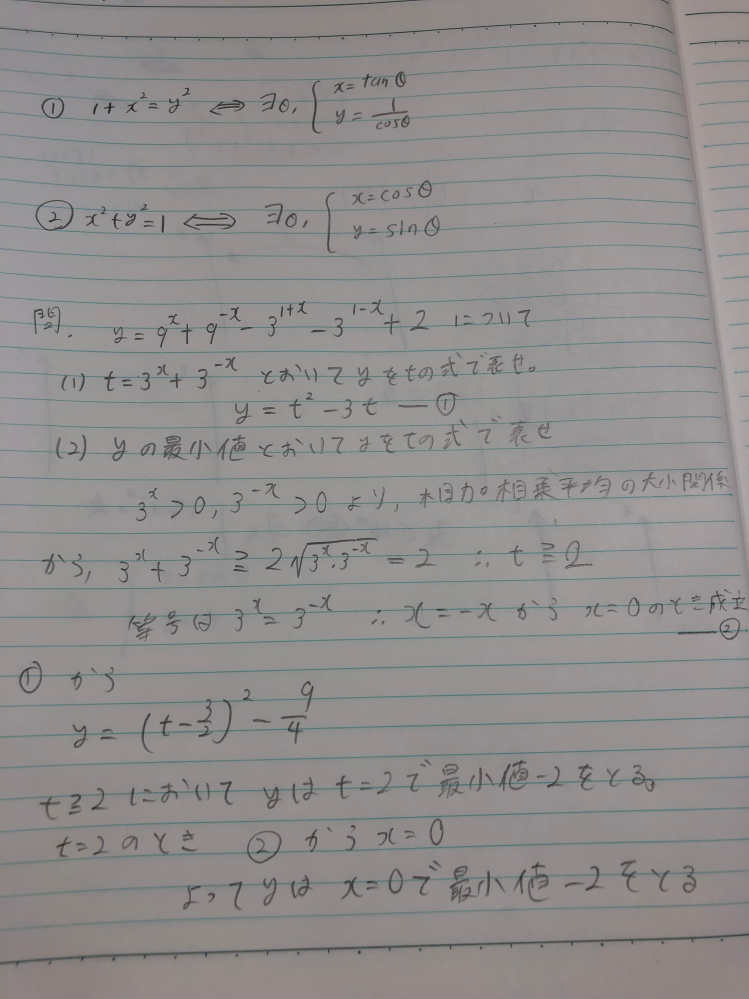 ① 1+x²=y² ⇔ ∃θ, { x=tanθ
y=1/cosθ
② x²+y²=1 ⇔ ∃θ, { x=cosθ
y=sinθ
問. y=9^x+9^{-x}-3^{1+x}-3^{1-x}+2 について
(1) t=3^x+3^{-x} とおいてyをtの式で表せ。
y=t²-3t —①
(2) yの最小値とおいてyをtの式で表せ
3^x>0, 3^{-x}>0 より, 相加相乗平均の大小関係
から, 3^x+3^{-x}≧2√(3^x・3^{-x})=2 ∴ t≧2
等号は 3^x=3^{-x} ∴ x=-x から x=0のとき成立
—②
① から
y=(t-3/2)²-9/4
t≧2 において yは t=2で最小値-2をとる。
t=2のとき ② から x=0
よってyは x=0で最小値-2をとる